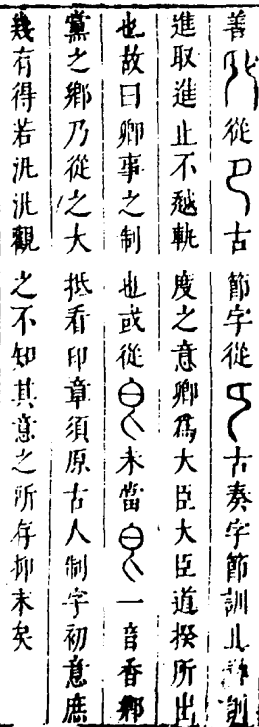 善從古節字從古奏字節訓止奏訓
進取進止不越軌度之意卿為大臣大臣道揆所出
也故曰卿事之制也或從未當一音香鄉
黨之鄉乃從之大抵看印章須原古人制字初意庶
幾有得若汎汎觀之不知其意之所存抑末矣